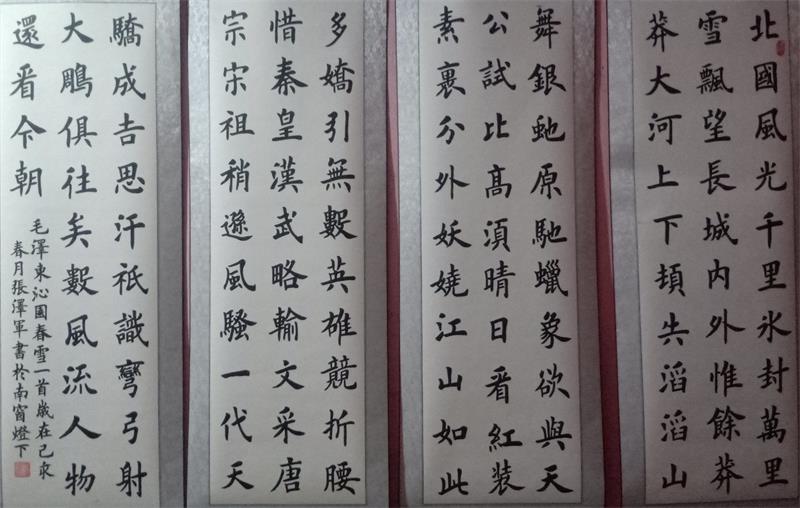 北國風光千里氷封萬里
雪飄望長城内外惟餘莽
莽大河上下頓失滔滔山
舞銀虵原馳蠟象欲與天
公試比高須晴日看紅装
素裹分外妖嬈江山如此
多嬌引無數英雄競折腰
惜秦皇漢武略輸文采唐
宗宋祖稍遜風騷一代天
驕成吉思汗祇識彎弓射
大鵰俱往矣數風流人物
還看今朝
毛澤東沁園春雪一首歲在己亥
春月張澤軍書於南窗燈下